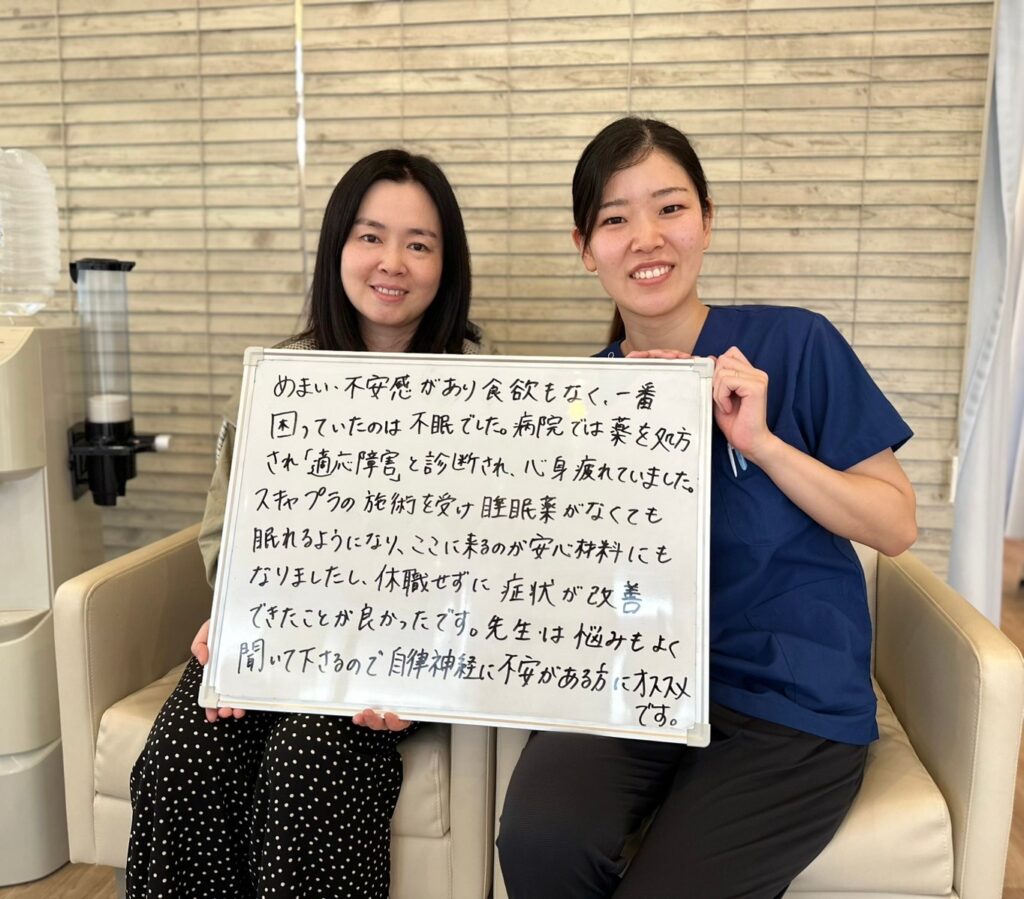 めまい、不安感があり食欲もなく、一番
困っていたのは不眠でした。病院では薬を処方
され「適応障害」と診断され、心身疲れていました。
スキャプラの施術を受け睡眠薬がなくても
眠れるようになり、ここに来るのが安心材料にも
なりましたし、休職せずに症状が改善
できたことが良かったです。先生は悩みもよく
聞いて下さるので自律神経に不安がある方にオススメ
です。